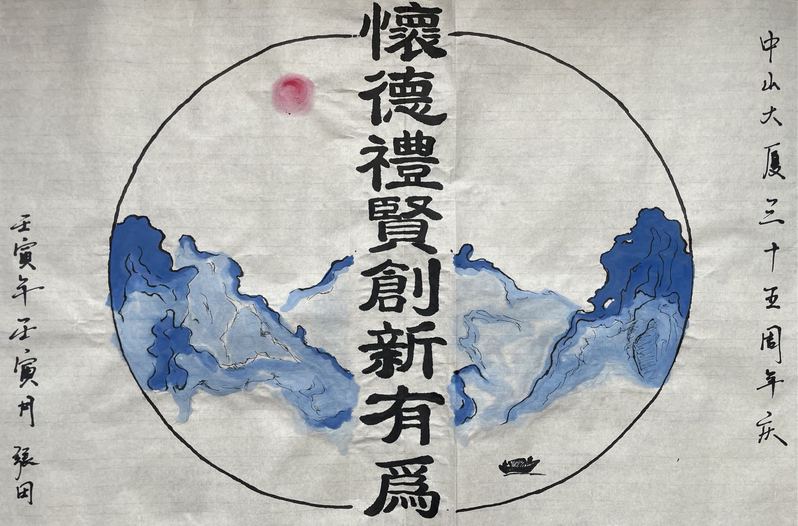 中山大厦三十五周年庆
懷德禮賢創新有爲
壬寅年壬寅月 張田